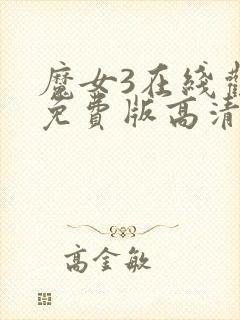 魔女3在线观
免费版高清
高金敏